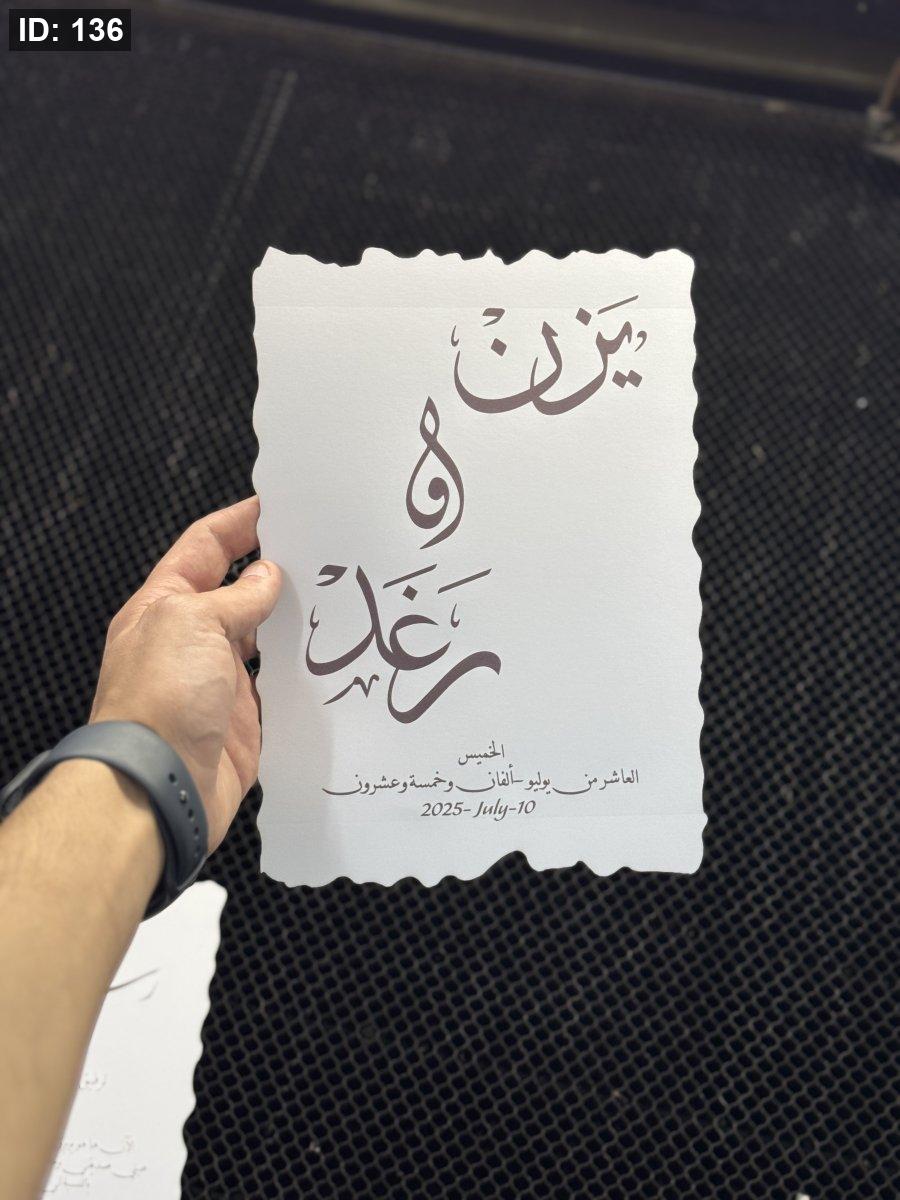 ID: 136
يَزن
و
رغَد
الخميس
العاشر من يوليو - ألفان وخمسة وعشرون
2025- July-10